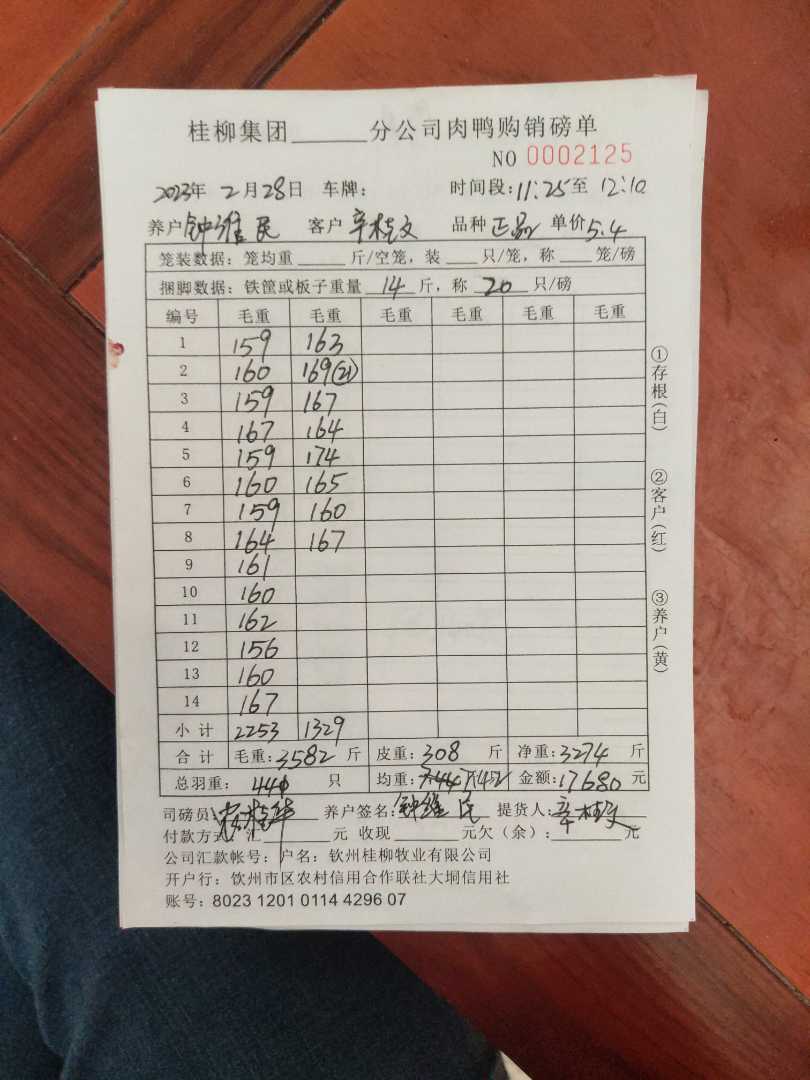 桂柳集团______分公司肉鸭购销磅单
NO 0002125
2023年 2月28日 车牌： 时间段：11:25至 12:10
养户 钟维民 客户 辛桂文 品种 正品 单价5.4
笼装数据：笼均重 ____ 斤/空笼，装 ___ 只/笼，称 ___ 笼/磅
捆脚数据：铁筐或板子重量 14 斤，称 20 只/磅
编号 毛重 毛重 毛重 毛重 毛重 毛重
1 159 163
2 160 169(21)
3 159 167
4 167 164
5 159 174
6 160 165
7 159 160
8 164 167
9 161
10 160
11 162
12 156
13 160
14 167
小 计 2253 1329
合 计 毛重：3582 斤 皮重：308 斤 净重：3274 斤
总羽重： 441 只 均重： 金额：17680 元
司磅员 养户签名：钟维民 提货人：辛桂文
付款方式：汇______元 收现______元欠（余）：______元
公司汇款帐号：户名：钦州桂柳牧业有限公司
开户行：钦州市区农村信用合作联社大垌信用社
账号：8023 1201 0114 4296 07
①存根(白)
②客户(红)
③养户(黄)